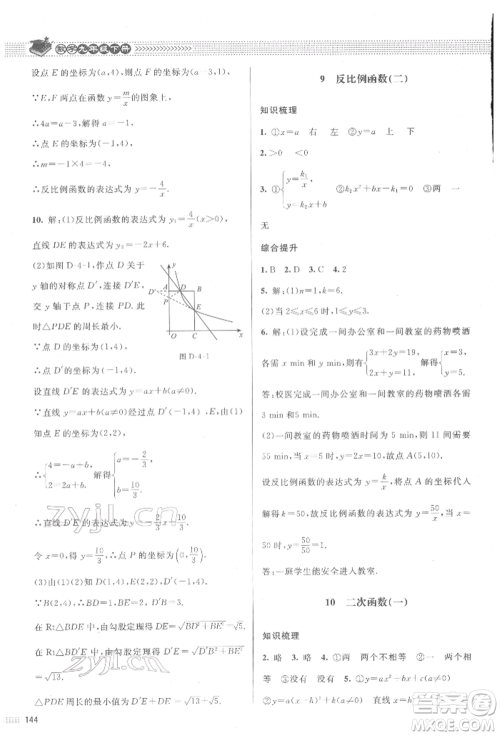 数学九年级下册
设点 E 的坐标为(a,4),则点 F 的坐标为(a-3,1),
∵点 E,F 在函数 y=m/x 的图象上,
∴4a=a-3,解得 a=-1.
∴点 E 的坐标为(-1,4).
∴m=-1×4=-4.
∴反比例函数的表达式为 y=-4/x.
10. 解:(1)反比例函数的表达式为 y₁=4/x(x>0),
直线 DE 的表达式为 y₂=-2x+6.
(2)如图 D-4-1,作点 D 关于
y 轴的对称点 D′,连接 D′E
交 y 轴于点 P,连接 PD,此时
△PDE 的周长最小.
∵点 D 的坐标为(1,4),
∴点 D′的坐标为(-1,4).
图 D-4-1
设直线 D′E 的表达式为 y=ax+b(a≠0).
∵直线 D′E 的表达式 y=ax+b 经过点 D′,E,
知点 E 的坐标为(2,2),
∴{4=-a+b, 2=2a+b. 解得{a=-2/3, b=10/3.
∴直线 D′E 的表达式为 y=-2/3x+10/3.
令 x=0,得 y=10/3,∴点 P 的坐标为(0,10/3).
(3)∵D(1,4),E(2,2),B(2,4),D′(-1,4),
∴BD′=3,BD=1,BE=2.
在 Rt△BDE 中,由勾股定理得 DE=√(BD²+BE²)=√5.
在 Rt△D′BE 中,由勾股定理得 D′E=√(BD′²+BE²)=√13.
△PDE 周长的最小值为 D′E+DE=√13+√5.
144
9 反比例函数(二)
知识梳理
1. ①x=a 右 左 ②y=a 上 下
2. ①>0 ②<0
3. ①{y=k₂/x, y=k₁x+b ②k₁x²+bx-k₂=0 ③两 一
无
综合提升
1. B 2. D 3. C 4. 2
5. 解:(1)n=1,k=6.
(2)当 1≤x≤6 时,1≤y≤6.
6. 解:(1)设完成一间办公室和一间教室的药物喷洒
各需 x min 和 y min,则{3x+2y=19, 2x+y=11.解得{x=3, y=5.
答:校医完成一间办公室和一间教室的药物喷洒
各需 3 min 和 5 min.
(2)一间教室的药物喷洒时间为 5 min,
则 11 个房间需要 55 min.
当 x=5 时,y=2x=10,∴点 A 的坐标为(5,10).
设反比例函数的表达式为 y=k/x,将点 A 的坐标代
入,得 k=50,∴反比例函数的表达式为 y=50/x.
当 x=55 时,y=50/55<1.
答:一班学生能安全进入教室.
10 二次函数(一)
知识梳理
2. 略 3. 略 4. ①两 一 没有 ②两个不等
两个相等 没有
5. ①y=a(x-h)²+k(a≠0) ②y=ax²+bx+c
zyjl.cn
zyjl.cn
答案圈
MXQE.COM